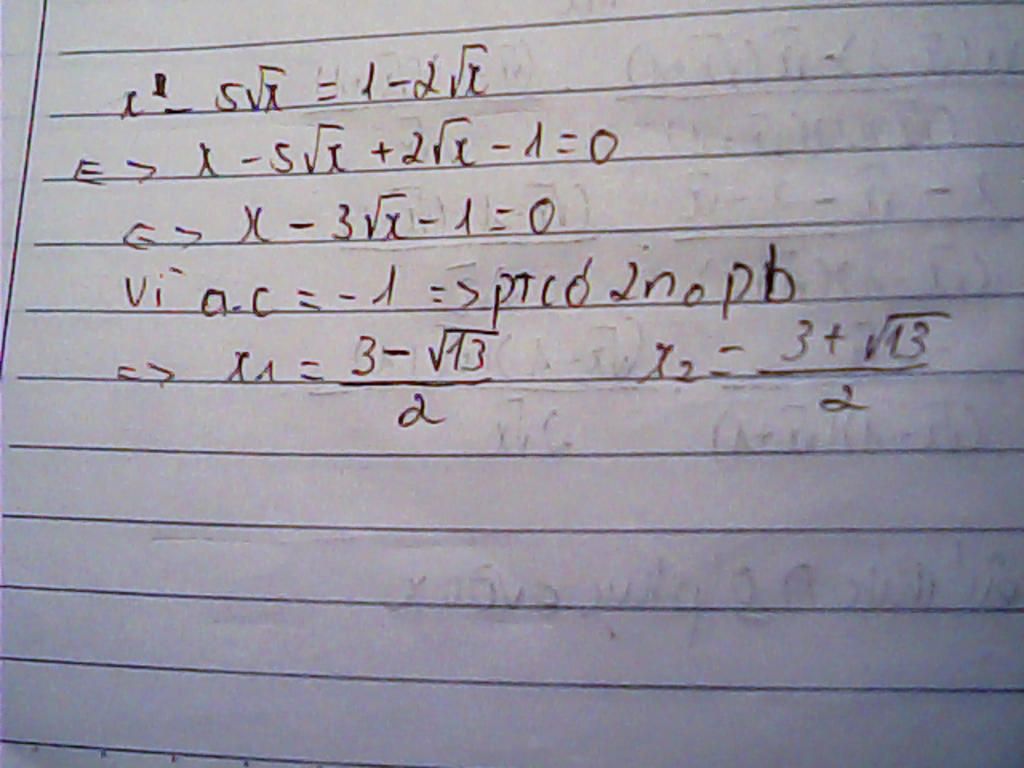 x - 5√x = 1 - 2√x
<=> x - 5√x + 2√x - 1 = 0
<=> x - 3√x - 1 = 0
Vì a.c = -1 => ptcó 2no pb
=> x₁ = (3 - √13)/2 x₂ = (3 + √13)/2